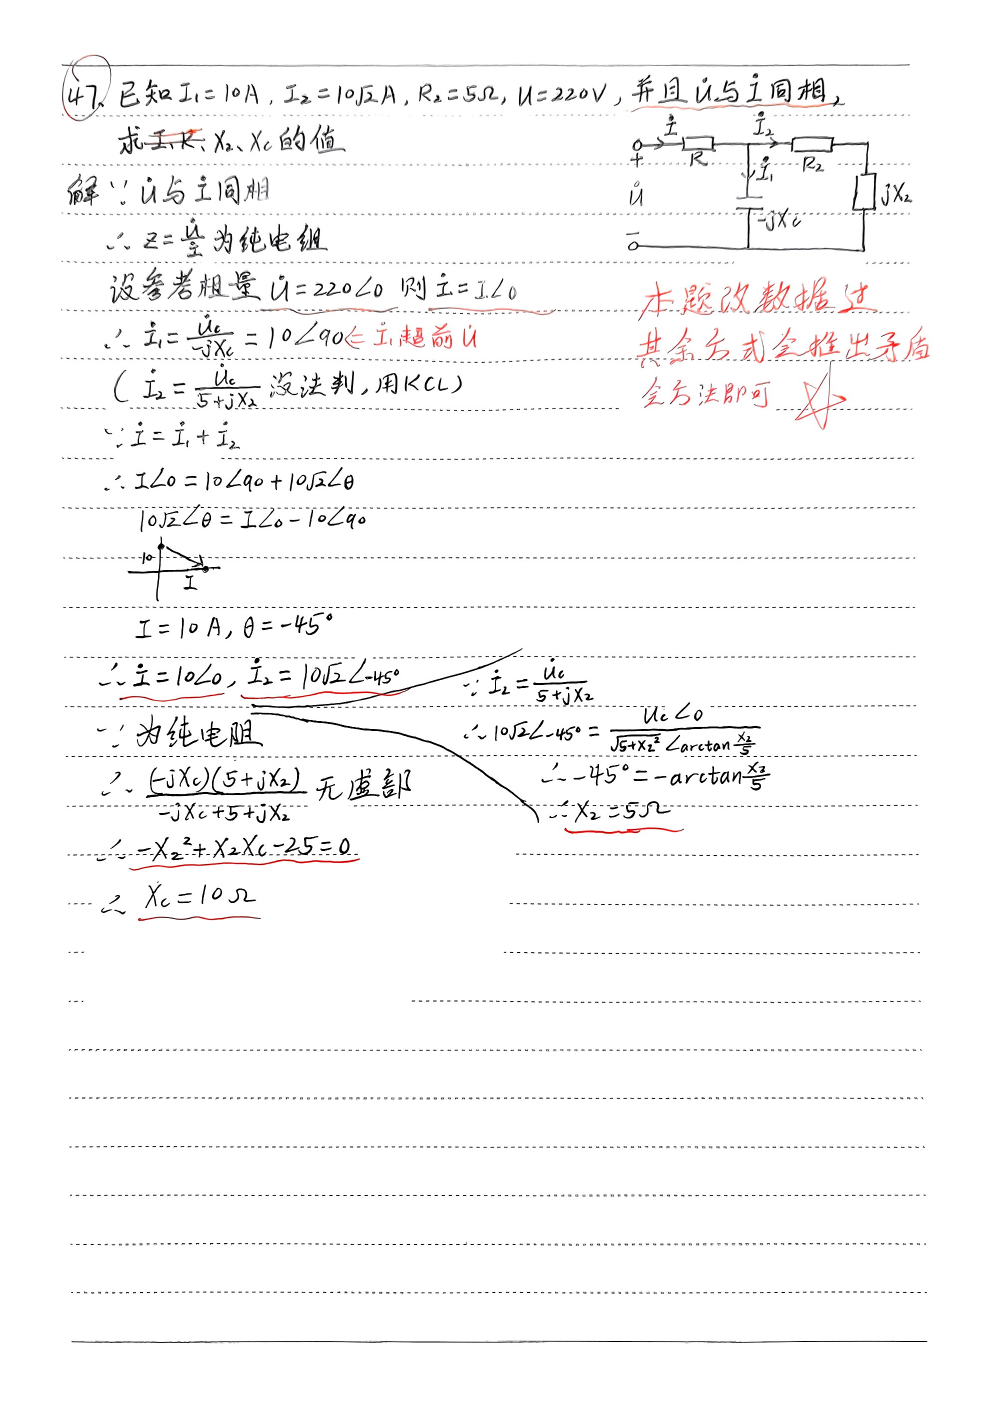 47. 已知 I₁=10A, I₂=10√2A, R₂=5Ω, U=220V, 并且 U̇与İ同相,
求I、R、X₂、Xc的值
İ
İ₂
R
R₂
+
İ₁
U̇
-jXc
jX₂
−
解 ∵ U̇与İ同相
∴ Z=U̇/İ 为纯电组
设参考相量 U̇=220∠0 则 İ=I∠0
∴ İ₁=U̇c/-jXc=10∠90 ← İ₁超前U̇
(İ₂=U̇c/5+jX₂ 没法判,用KCL)
本题改数据过
其余方式会推出矛盾
会方法即可
∵ İ=İ₁+İ₂
∴ I∠0=10∠90+10√2∠θ
10√2∠θ=I∠0-10∠90
10
I
I=10A, θ=-45°
∴ İ=10∠0, İ₂=10√2∠-45°
∵ 为纯电阻
∴ (-jXc)(5+jX₂)/-jXc+5+jX₂ 无虚部
∴ -X₂²+X₂Xc-25=0
∴ Xc=10Ω
∵ İ₂=U̇c/5+jX₂
∴ 10√2∠-45°=Uc∠0/√5+X₂² ∠arctan X₂/5
∴ -45°=-arctan X₂/5
∴ X₂=5Ω